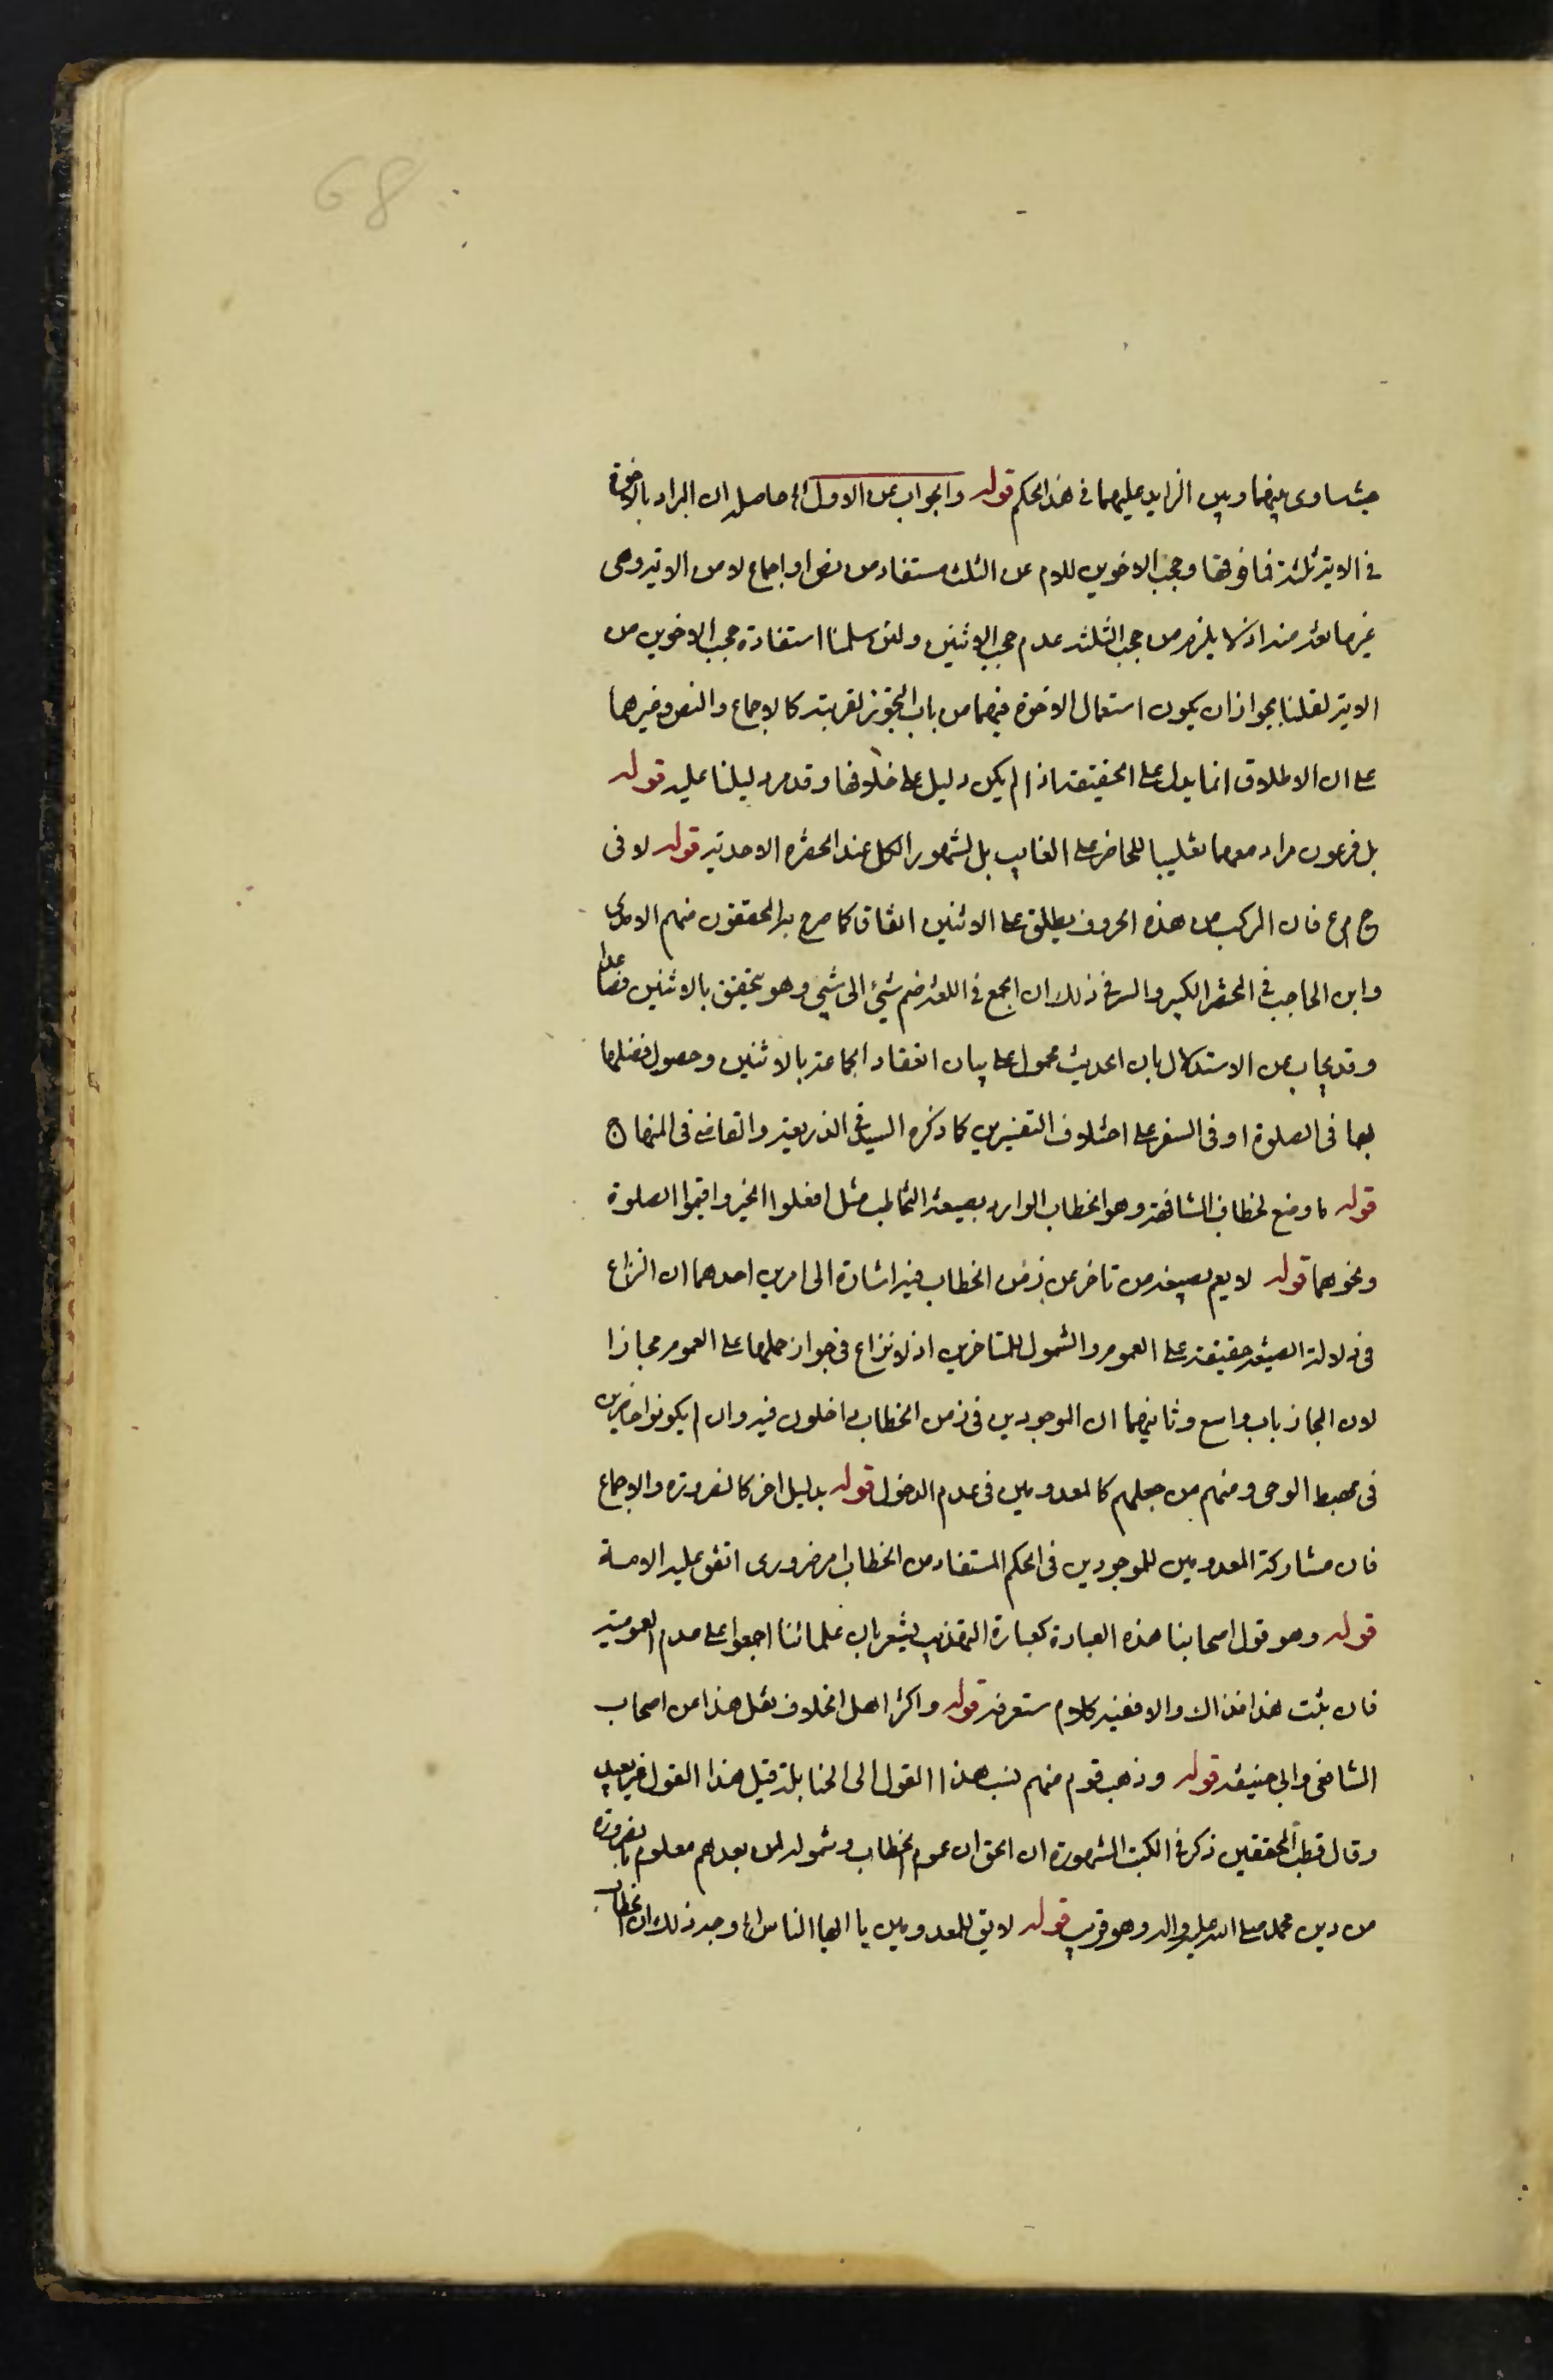 68
متساوى بينهما وبين الزايد عليهما فى هذا الحكم قوله والجواب عن الاول اه حاصله ان المراد بالاخوة
فى الاية ثلثة فما فوقها وحجب الاخوين للام عن الثلث مستفاد من نص او اجماع لا من الاية وهى
غير مانعة منه اذ لا يلزم من حجب الثلثة عدم حجب الاثنين ولئن سلمنا استفادة حجب الاخوين من
الاية لقلنا بجواز ان يكون استعمال الاخوة فيهما من باب التجوز لقرينة كالاجماع والنص وغيرهما
على ان الاطلاق انما يدل على الحقيقة اذا لم يكن دليل على خلافها وقد مر دليلنا عليه قوله
بل فرعون مراد معهما تغليبا للحاضر على الغايب بل لشهور الكل عند الحضرة الاحدية قوله لا فى
ج م ع فان المركب من هذه الحروف يطلق على الاثنين اتفاقا كما صرح به المحققون منهم الامدى
وابن الحاجب فى المختصر الكبير والسر فى ذلك ان الجمع فى اللغة ضم شيئ الى شيئ وهو يتحقق بالاثنين فصاعدا
وقد يجاب عن الاستدلال بان الحديث محمول على بيان انعقاد الجماعة بالاثنين وحصول فضلها
بهما فى الصلوة او فى السفر على اختلاف التفسيرين كما ذكره السيد فى الذريعة والقاضى فى المنهاج
قوله ما وضع لخطاب المشافهة وهو الخطاب الوارد بصيغة التخاطب مثل افعلوا الخير واقيموا الصلوة
ونحوهما قوله لا يعم بصيغة من تاخر عن زمن الخطاب فيه اشارة الى امرين احدهما ان النزاع
فى دلالة الصيغة حقيقة على العموم والشمول للمتاخرين اذ لا نزاع فى جواز حملها على العموم مجازا
لان المجاز باب واسع وثانيهما ان الموجودين فى زمن الخطاب داخلون فيه وان لم يكونوا حاضرين
فى مهبط الوحى ومنهم من جعلهم كالمعدومين فى عدم الدخول قوله بدليل اخر كالضرورة والاجماع
فان مشاركة المعدومين للموجودين فى الحكم المستفاد من الخطاب امر ضرورى اتفق عليه الامة
قوله وهو قول اصحابنا هذه العبارة كعبارة التهذيب يشعر بان علمائنا اجمعوا على عدم العمومية
فان ثبت هذا فذاك والا ففيه كلام ستعرفه قوله واكثر اهل الخلاف نقل هذا عن اصحاب
الشافعى وابى حنيفة قوله وذهب قوم منهم نسب هذا القول الى الحنابلة قيل هذا القول غير بعيد
وقال قطب المحققين ذكر فى الكتب المشهورة ان الحق ان عموم الخطاب وشموله لمن بعدهم معلوم بالضرورة
من دين محمد صلى الله عليه واله وهو قريب قوله لا يق للمعدومين يا ايها الناس اه وجه ذلك ان الخطاب